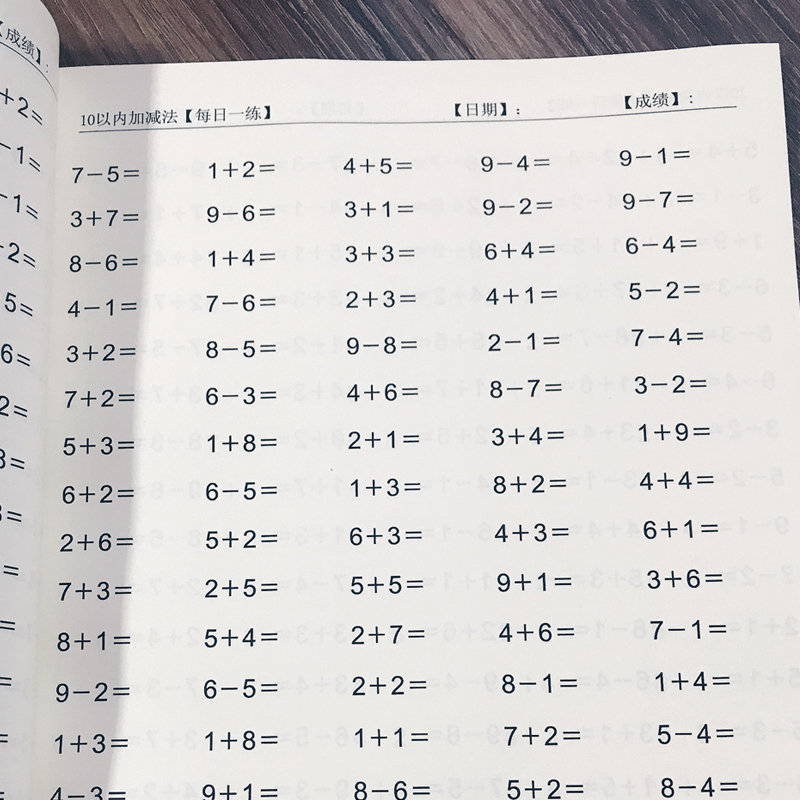 【成绩】:
+2=
-1=
-1=
+2=
5=
6=
2=
3=
3=
=
=
=
=
10以内加减法【每日一练】 【日期】: 【成绩】:
7-5= 1+2= 4+5= 9-4= 9-1=
3+7= 9-6= 3+1= 9-2= 9-7=
8-6= 1+4= 3+3= 6+4= 6-4=
4-1= 7-6= 2+3= 4+1= 5-2=
3+2= 8-5= 9-8= 2-1= 7-4=
7+2= 6-3= 4+6= 8-7= 3-2=
5+3= 1+8= 2+1= 3+4= 1+9=
6+2= 6-5= 1+3= 8+2= 4+4=
2+6= 5+2= 6+3= 4+3= 6+1=
7+3= 2+5= 5+5= 9+1= 3+6=
8+1= 5+4= 2+7= 4+6= 7-1=
9-2= 6-5= 2+2= 8-1= 1+4=
1+3= 1+8= 1+1= 7+2= 5-4=
4-3= 9+1= 8-6= 5+2= 8-4=